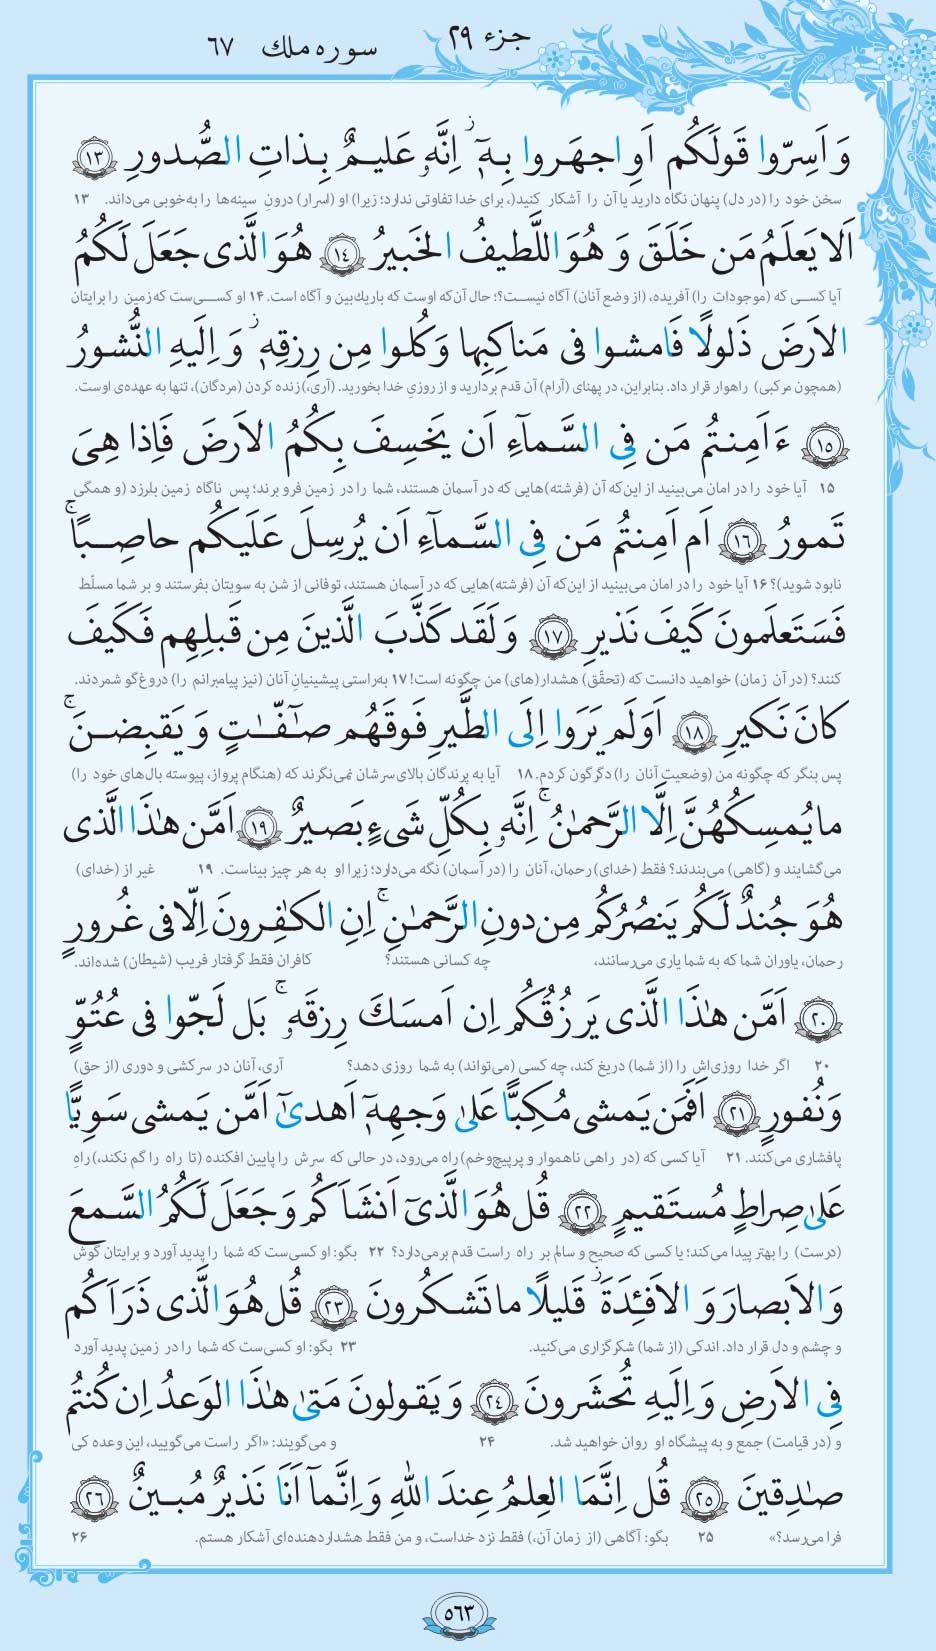 جزء ۲۹
سوره ملك ۶۷
وَ اَسِرّوا قَولَكُم اَوِ اجهَروا بِهٖٓ ۖ اِنَّهٗ عَليمٌ بِذاتِ الصُّدورِ ﴿۱۳﴾
سخن خود را (در دل) پنهان نگاه دارید یا آن را آشکار کنید(، برای خدا تفاوتی ندارد؛ زیرا) او (اسرار) درونِ سینه‌ها را به‌خوبی می‌داند. ۱۳
اَلا يَعلَمُ مَن خَلَقَ وَ هُوَ اللَّطيفُ الخَبيرُ ﴿۱۴﴾ هُوَ الَّذى جَعَلَ لَكُمُ
آیا کسـی که (موجودات را) آفریده، (از وضع آنان) آگاه نیسـت؟؛ حال آن‌که اوست که باریک‌بین و آگاه است. ۱۴ او کسـی‌ست که زمین را برایتان
الاَرضَ ذَلولًا فَامشوا فى مَناكِبِها وَ كُلوا مِن رِزقِهٖ ۖ وَ اِلَيهِ النُّشورُ
(همچون مرکبی) راهوار قرار داد. بنابراین، در پهنای (آرام) آن قدم بردارید و از روزیِ خدا بخورید. (آری،) زنده کردن (مردگان)، تنها به عهده‌ی اوست.
﴿۱۵﴾ ءَاَمِنتُم مَن فِى السَّمآءِ اَن يَخسِفَ بِكُمُ الاَرضَ فَاِذا هِىَ
۱۵ آیا خود را در امان می‌بینید از این‌که آن (فرشته)هایی که در آسمان هستند، شما را در زمین فرو برند؛ پس ناگاه زمین بلرزد (و همگی
تَمورُ ﴿۱۶﴾ اَم اَمِنتُم مَن فِى السَّمآءِ اَن يُرسِلَ عَلَيكُم حاصِبًا ۖ
نابود شوید)؟ ۱۶ آیا خود را در امان می‌بینید از این‌که آن (فرشته)هایی که در آسمان هستند، توفانی از شن به سویتان بفرستند و بر شما مسلّط
فَسَتَعلَمونَ كَيفَ نَذيرِ ﴿۱۷﴾ وَ لَقَد كَذَّبَ الَّذينَ مِن قَبلِهِم فَكَيفَ
کنند؟ (در آن زمان) خواهید دانست که (تحقّق) هشدار(های) من چگونه است! ۱۷ به‌راستی پیشینیانِ آنان (نیز پیامبرانم را) دروغ‌گو شمردند.
كانَ نَكيرِ ﴿۱۸﴾ اَوَلَم يَرَوا اِلَى الطَّيرِ فَوقَهُم صٰٓفّٰتٍ وَ يَقبِضنَ ۚ
پس بنگر که چگونه من (وضعیتِ آنان را) دگرگون کردم. ۱۸ آیا به پرندگان بالای سرشان نمی‌نگرند که (هنگام پرواز، پیوسته بال‌های خود را)
ما يُمسِكُهُنَّ اِلَّا الرَّحمٰنُ ۚ اِنَّهٗ بِكُلِّ شَىءٍ بَصيرٌ ﴿۱۹﴾ اَمَّن هٰذَا الَّذى
می‌گشایند و (گاهی) می‌بندند؟ فقط (خدای) رحمان، آنان را (در آسمان) نگه می‌دارد؛ زیرا او به هر چیز بیناست. ۱۹ غیر از (خدای)
هُوَ جُندٌ لَكُم يَنصُرُكُم مِن دونِ الرَّحمٰنِ ۚ اِنِ الكٰفِرونَ اِلّا فى غُرورٍ
رحمان، یاوران شما که به شما یاری می‌رسانند، چه کسانی هستند؟ کافران فقط گرفتار فریب (شیطان) شده‌اند.
﴿۲۰﴾ اَمَّن هٰذَا الَّذى يَرزُقُكُم اِن اَمسَكَ رِزقَهٗ ۚ بَل لَجّوا فى عُتُوٍّ
۲۰ اگر خدا روزی‌اش را (از شما) دریغ کند، چه کسی (می‌تواند) به شما روزی دهد؟ آری، آنان در سرکشی و دوری (از حق)
وَ نُفورٍ ﴿۲۱﴾ اَفَمَن يَمشى مُكِبًّا عَلىٰ وَجهِهٖٓ اَهدىٰٓ اَمَّن يَمشى سَوِيًّا
پافشاری می‌کنند. ۲۱ آیا کسی که (در راهی ناهموار و پرپیچ‌وخم) راه می‌رود، در حالی که سرش را پایین افکنده (تا راه را گم نکند،) راهِ
عَلىٰ صِراطٍ مُستَقيمٍ ﴿۲۲﴾ قُل هُوَ الَّذىٓ اَنشَاَكُم وَ جَعَلَ لَكُمُ السَّمعَ
(درست) را بهتر پیدا می‌کند؛ یا کسی که صحیح و سالم بر راه راست قدم برمی‌دارد؟ ۲۲ بگو: او کسی‌ست که شما را پدید آورد و برایتان گوش
وَ الاَبصارَ وَ الاَفئِدَةَ ۖ قَليلًا ما تَشكُرونَ ﴿۲۳﴾ قُل هُوَ الَّذى ذَرَاَكُم
و چشم و دل قرار داد. اندکی (از شما) شکرگزاری می‌کنید. ۲۳ بگو: او کسی‌ست که شما را در زمین پدید آورد
فِى الاَرضِ وَ اِلَيهِ تُحشَرونَ ﴿۲۴﴾ وَ يَقولونَ مَتىٰ هٰذَا الوَعدُ اِن كُنتُم
و (در قیامت) جمع و به پیشگاه او روان خواهید شد. ۲۴ و می‌گویند: «اگر راست می‌گویید، این وعده کی
صٰدِقينَ ﴿۲۵﴾ قُل اِنَّمَا العِلمُ عِندَ اللهِ وَ اِنَّمآ اَنَا نَذيرٌ مُبينٌ ﴿۲۶﴾
فرا می‌رسد؟» ۲۵ بگو: آگاهی (از زمان آن،) فقط نزد خداست، و من فقط هشداردهنده‌ای آشکار هستم. ۲۶
۵۶۳